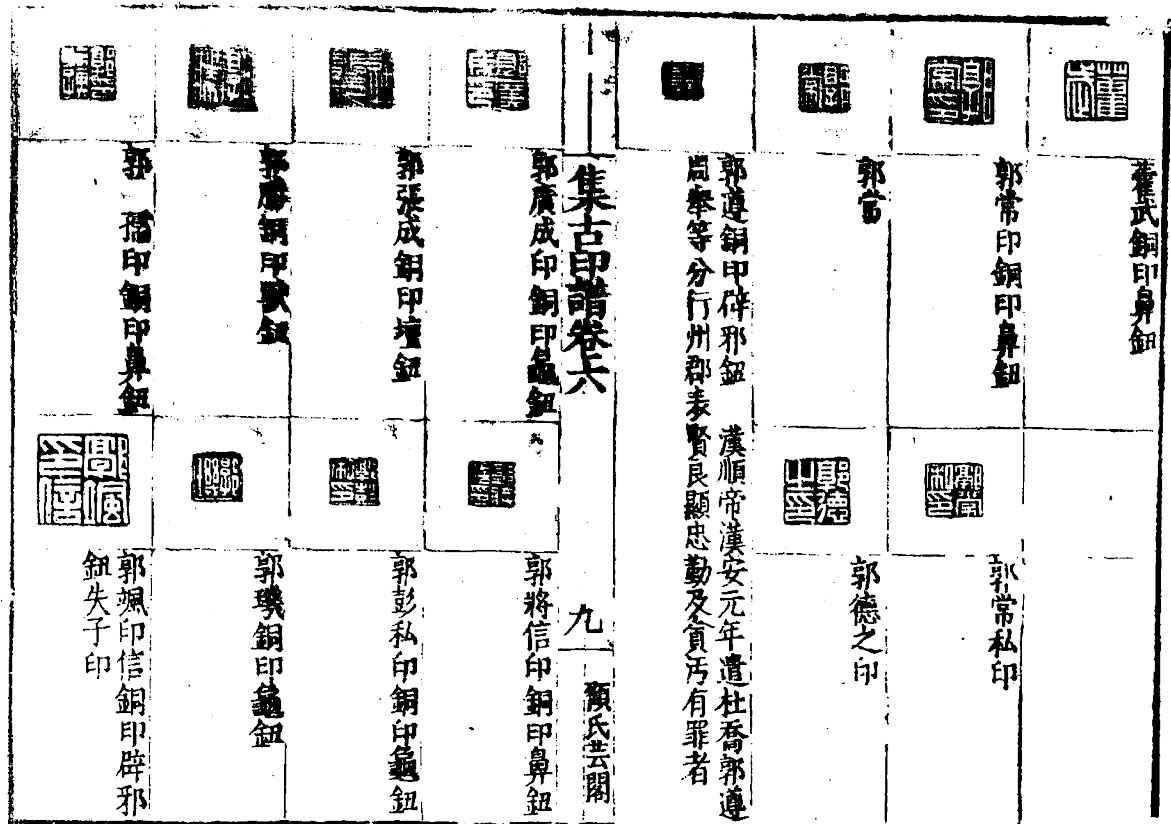 藿武銅印鼻鈕
郭常印銅印鼻鈕
郭常私印
郭當
郭德之印
郭遵銅印辟邪鈕 漢順帝漢安元年遣杜喬郭遵
周舉等分行州郡表賢良顯忠勤及貪汚有罪者
集古印譜卷六
九
顧氏芸閣
郭廣成印銅印龜鈕
郭將信印銅印鼻鈕
郭張成銅印壇鈕
郭彭私印銅印龜鈕
郭勝銅印獸鈕
郭璣銅印龜鈕
郭 孺印銅印鼻鈕
郭颯印信銅印辟邪
鈕失子印